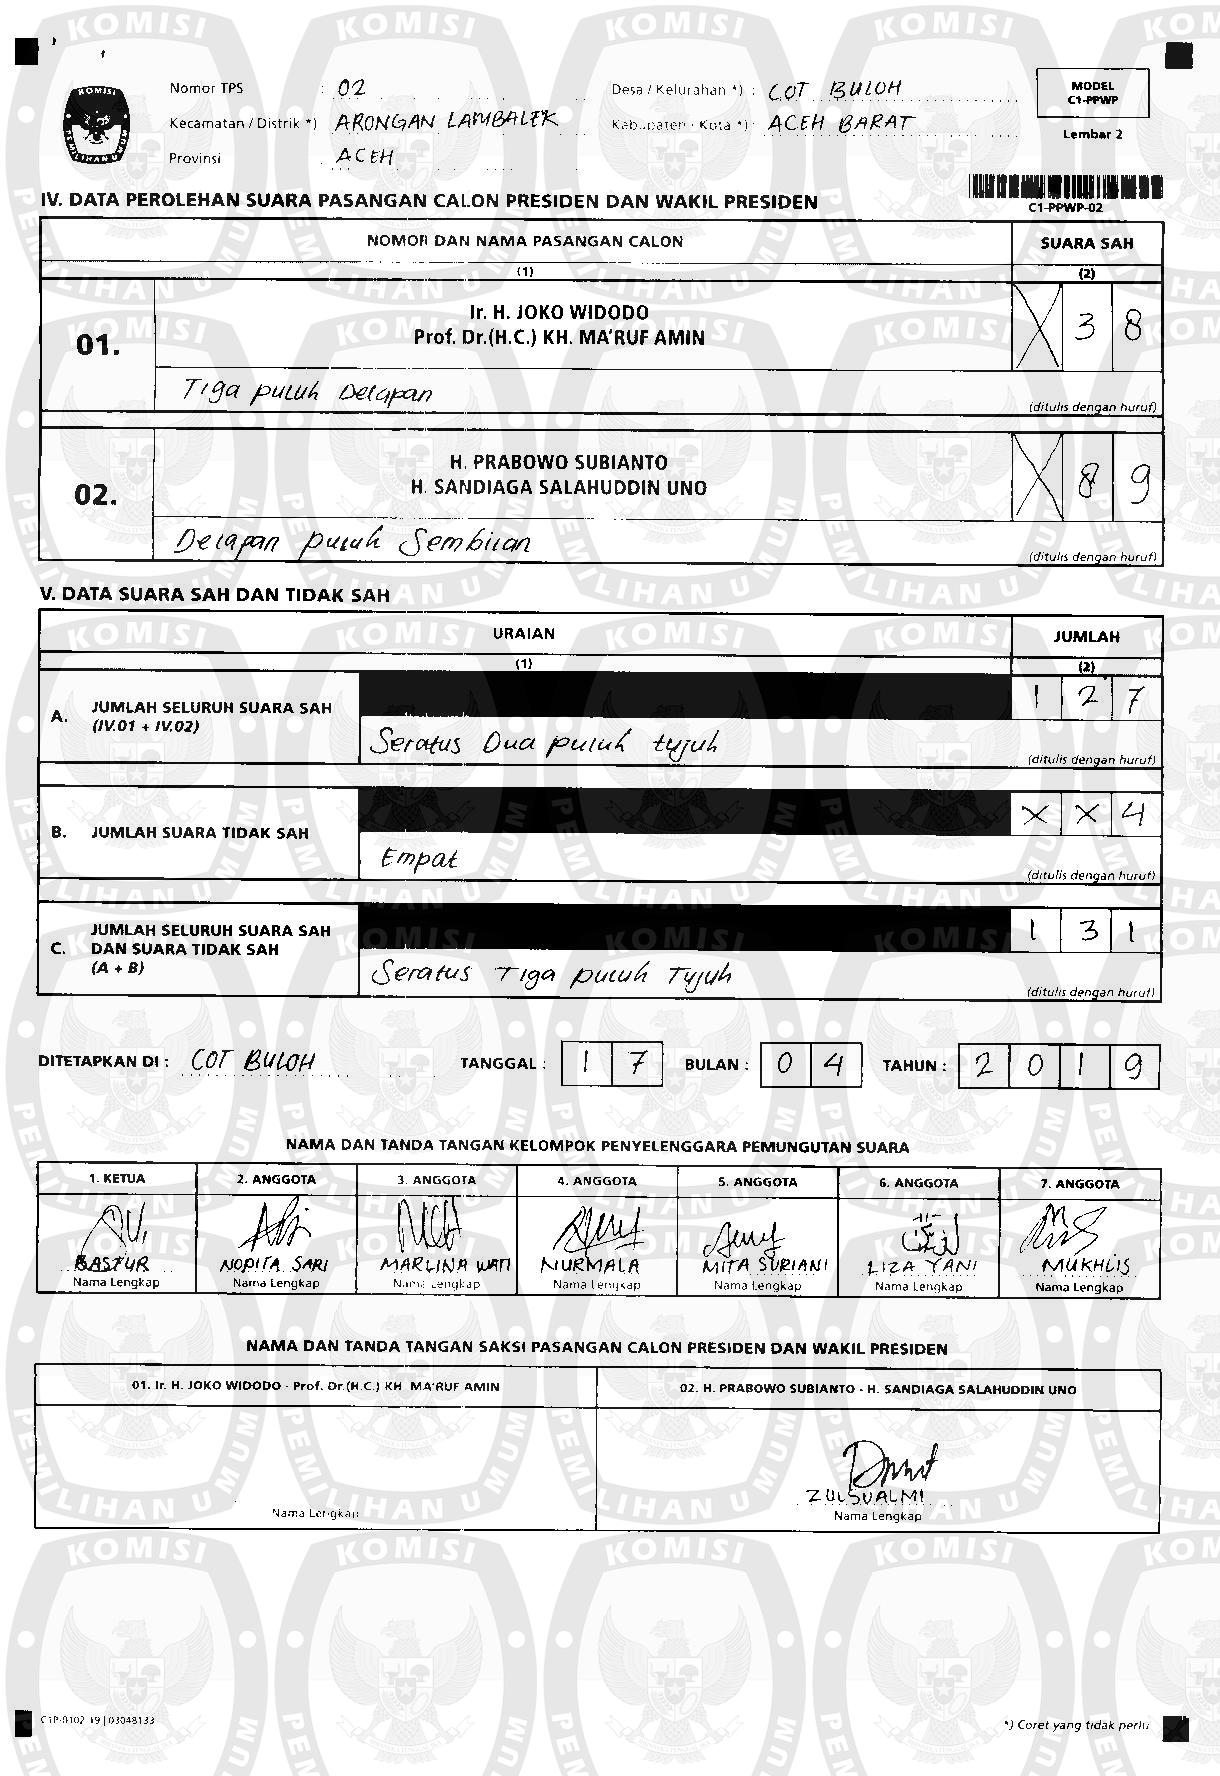 KOMISI
PEMILIHAN UMUM
Nomor TPS : 02
Desa / Kelurahan *) : COT BULOH
MODEL
C1-PPWP
Kecamatan / Distrik *) ARONGAN LAMBALEK
Kabupaten / Kota *) : ACEH BARAT
Lembar 2
Provinsi : ACEH
IV. DATA PEROLEHAN SUARA PASANGAN CALON PRESIDEN DAN WAKIL PRESIDEN
C1-PPWP-02
NOMOR DAN NAMA PASANGAN CALON SUARA SAH
(1) (2)
01. Ir. H. JOKO WIDODO
Prof. Dr.(H.C.) KH. MA'RUF AMIN X 3 8
Tiga puluh Delapan
(ditulis dengan huruf)
02. H. PRABOWO SUBIANTO
H. SANDIAGA SALAHUDDIN UNO X 8 9
Delapan puluh Sembilan
(ditulis dengan huruf)
V. DATA SUARA SAH DAN TIDAK SAH
URAIAN JUMLAH
(1) (2)
A. JUMLAH SELURUH SUARA SAH
(IV.01 + IV.02) 1 2 7
Seratus Dua puluh tujuh
(ditulis dengan huruf)
B. JUMLAH SUARA TIDAK SAH X X 4
Empat
(ditulis dengan huruf)
C. JUMLAH SELURUH SUARA SAH
DAN SUARA TIDAK SAH
(A + B) 1 3 1
Seratus Tiga puluh Tujuh
(ditulis dengan huruf)
DITETAPKAN DI : COT BULOH TANGGAL : 1 7 BULAN : 0 4 TAHUN : 2 0 1 9
NAMA DAN TANDA TANGAN KELOMPOK PENYELENGGARA PEMUNGUTAN SUARA
1. KETUA 2. ANGGOTA 3. ANGGOTA 4. ANGGOTA 5. ANGGOTA 6. ANGGOTA 7. ANGGOTA
BASTUR NOPITA SARI MARLINA WATI NURMALA MITA SURIANI LIZA YANI MUKHLIS
Nama Lengkap Nama Lengkap Nama Lengkap Nama Lengkap Nama Lengkap Nama Lengkap Nama Lengkap
NAMA DAN TANDA TANGAN SAKSI PASANGAN CALON PRESIDEN DAN WAKIL PRESIDEN
01. Ir. H. JOKO WIDODO - Prof. Dr.(H.C.) KH. MA'RUF AMIN 02. H. PRABOWO SUBIANTO - H. SANDIAGA SALAHUDDIN UNO
ZULSUALMI
Nama Lengkap Nama Lengkap
C1P-0102-19 | 03048133
*) Coret yang tidak perlu